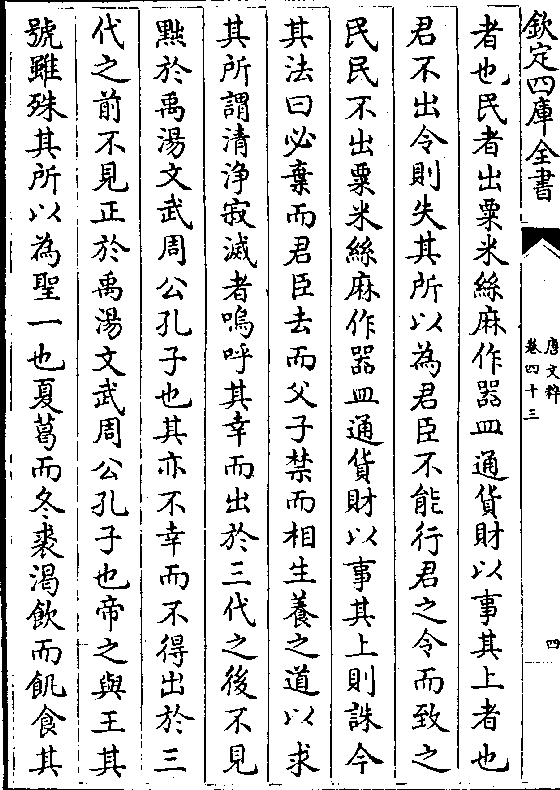 欽定四庫全書
唐文粹
卷四十三
四
者也民者出粟米絲麻作器皿通貨財以事其上者也
君不出令則失其所以為君臣不能行君之令而致之
民民不出粟米絲麻作器皿通貨財以事其上則誅今
其法曰必棄而君臣去而父子禁而相生養之道以求
其所謂清浄寂滅者嗚呼其幸而出於三代之後不見
黜於禹湯文武周公孔子也其亦不幸而不得出於三
代之前不見正於禹湯文武周公孔子也帝之與王其
號雖殊其所以為聖一也夏葛而冬裘渴飲而飢食其